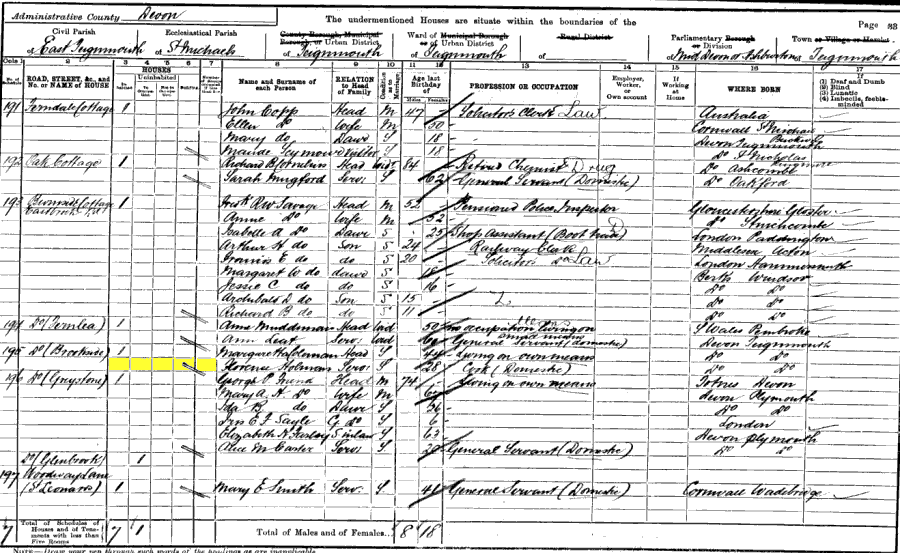 Administrative County Devon
The undermentioned Houses are situate within the boundaries of the
Page 33
Civil Parish
of East Teignmouth
Ecclesiastical Parish
of St Michaels
County Borough, Municipal Borough, or Urban District
of Teignmouth
Ward of Municipal Borough or of Urban District
of Teignmouth
Rural District
of
Parliamentary Borough or Division
of Mid Devon or Ashburton
Town or Village or Hamlet
of Teignmouth
Cols 1 2 3 4 5 6 7 8 9 10 11 12 13 14 15 16 17
No. of Schedule
ROAD, STREET, &c., and No. or NAME of HOUSE
HOUSES
Uninhabited
Building
Name and Surname of each Person
RELATION to Head of Family
Condition as to Marriage
Age last Birthday of
Males Females
PROFESSION OR OCCUPATION
Employer, Worker, or Own account
If Working at Home
WHERE BORN
If
(1) Deaf and Dumb
(2) Blind
(3) Lunatic
(4) Imbecile, feeble-minded
191 Ferndale Cottage 1 John Copp Head M 47 Solicitors Clerk Law Australia
Ellen do Wife M 50 Cornwall
Mary do Daur S 18 Devon Teignmouth
Maude Seymour Visitor S 18 Do St Nicholas
192 Oak Cottage 1 Richard B Head Widr 84 Retired Chemist Drug Do Ashcombe
Sarah Mugford Serv. S 62 General Servant (Domestic) Do Oakford
193 Cottage 1 Savage Head M 52 Pensioned Police Inspector Gloucestershire
Annie Do Wife M 52 Do Stinchcombe
Isabelle A Do Daur S 25 Shop Assistant (Boot Trade) London Paddington
Arthur H do Son S 24 Railway Clerk Middlesex Acton
Francis E do do S 20 Solicitors Do Law London Hammersmith
Margaret W do daur S 18 Berks Windsor
Jessie C do do S 16 Do Do
Archibald D do Son S 15 Do Do
Richard B do do S 11 Do Do
194 Do (Fernlea) 1 Anne Muddiman Head Wid 50 no occupation living on small means S Wales Pembroke
Ann Serv. Wid General Servant (domestic) Devon Teignmouth
195 Do (Brookside) 1 Head S 44 Living on own means Do Do
Florence Holman Serv. S 28 Cook (Domestic) Do Do
196 Do (Greystone) 1 George Head M 74 Living on own means Totnes Devon
Mary A H Do Wife M Devon Plymouth
Ida B do Daur S 36 Do Do
Iris E F Sayle G Do S 6 London
Elizabeth S in law S 63 Devon Plymouth
Alice M Carter Serv. S General Servant (Domestic) Do Do
Do (Glenbrook) 1
197 Woodway Lane
(St Leonards) 1 Mary E Smith Serv. S 41 General Servant (Domestic) Cornwall Wadebridge
7 Total of Schedules of Houses and of Tenements with less than Five Rooms 7 1 Total of Males and of Females... 8 18
NOTE—Draw your pen through such words of the headings as are inapplicable.